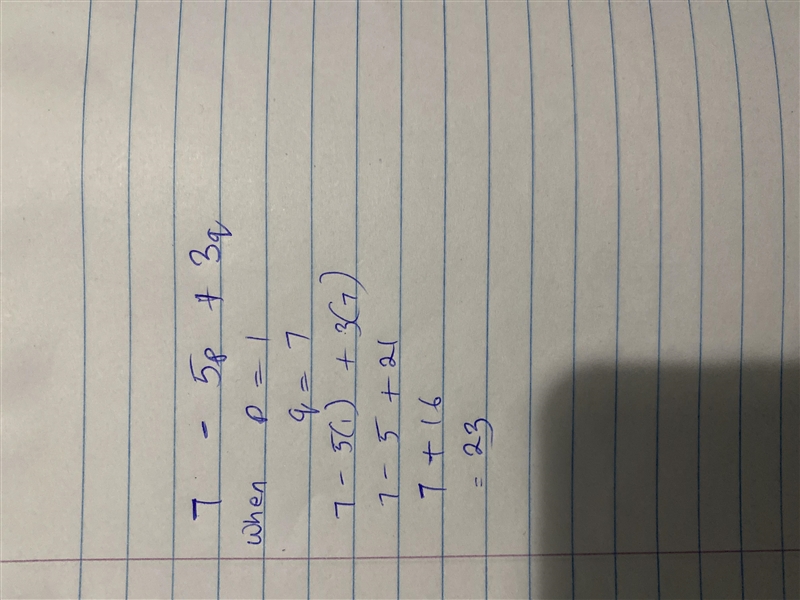 7 - 5p + 3q
when p = 1
q = 7
7 - 5(1) + 3(7)
7 - 5 + 21
7 + 16
= 23